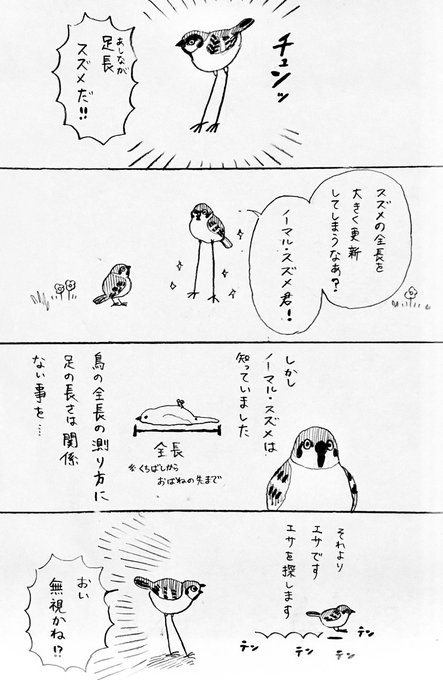 チュンッ
あしなが
足長
スズメだ!!
スズメの全長を
大きく更新
してしまうなあ?
ノーマル・スズメ君!
しかし
ノーマル・スズメは
知っていました
全長
※くちばしから
おばねの先まで
鳥の全長の測り方に
足の長さは関係
ない事を…
それより
エサです
エサを探します
テン
テン
テン
テン
おい
無視かね!?